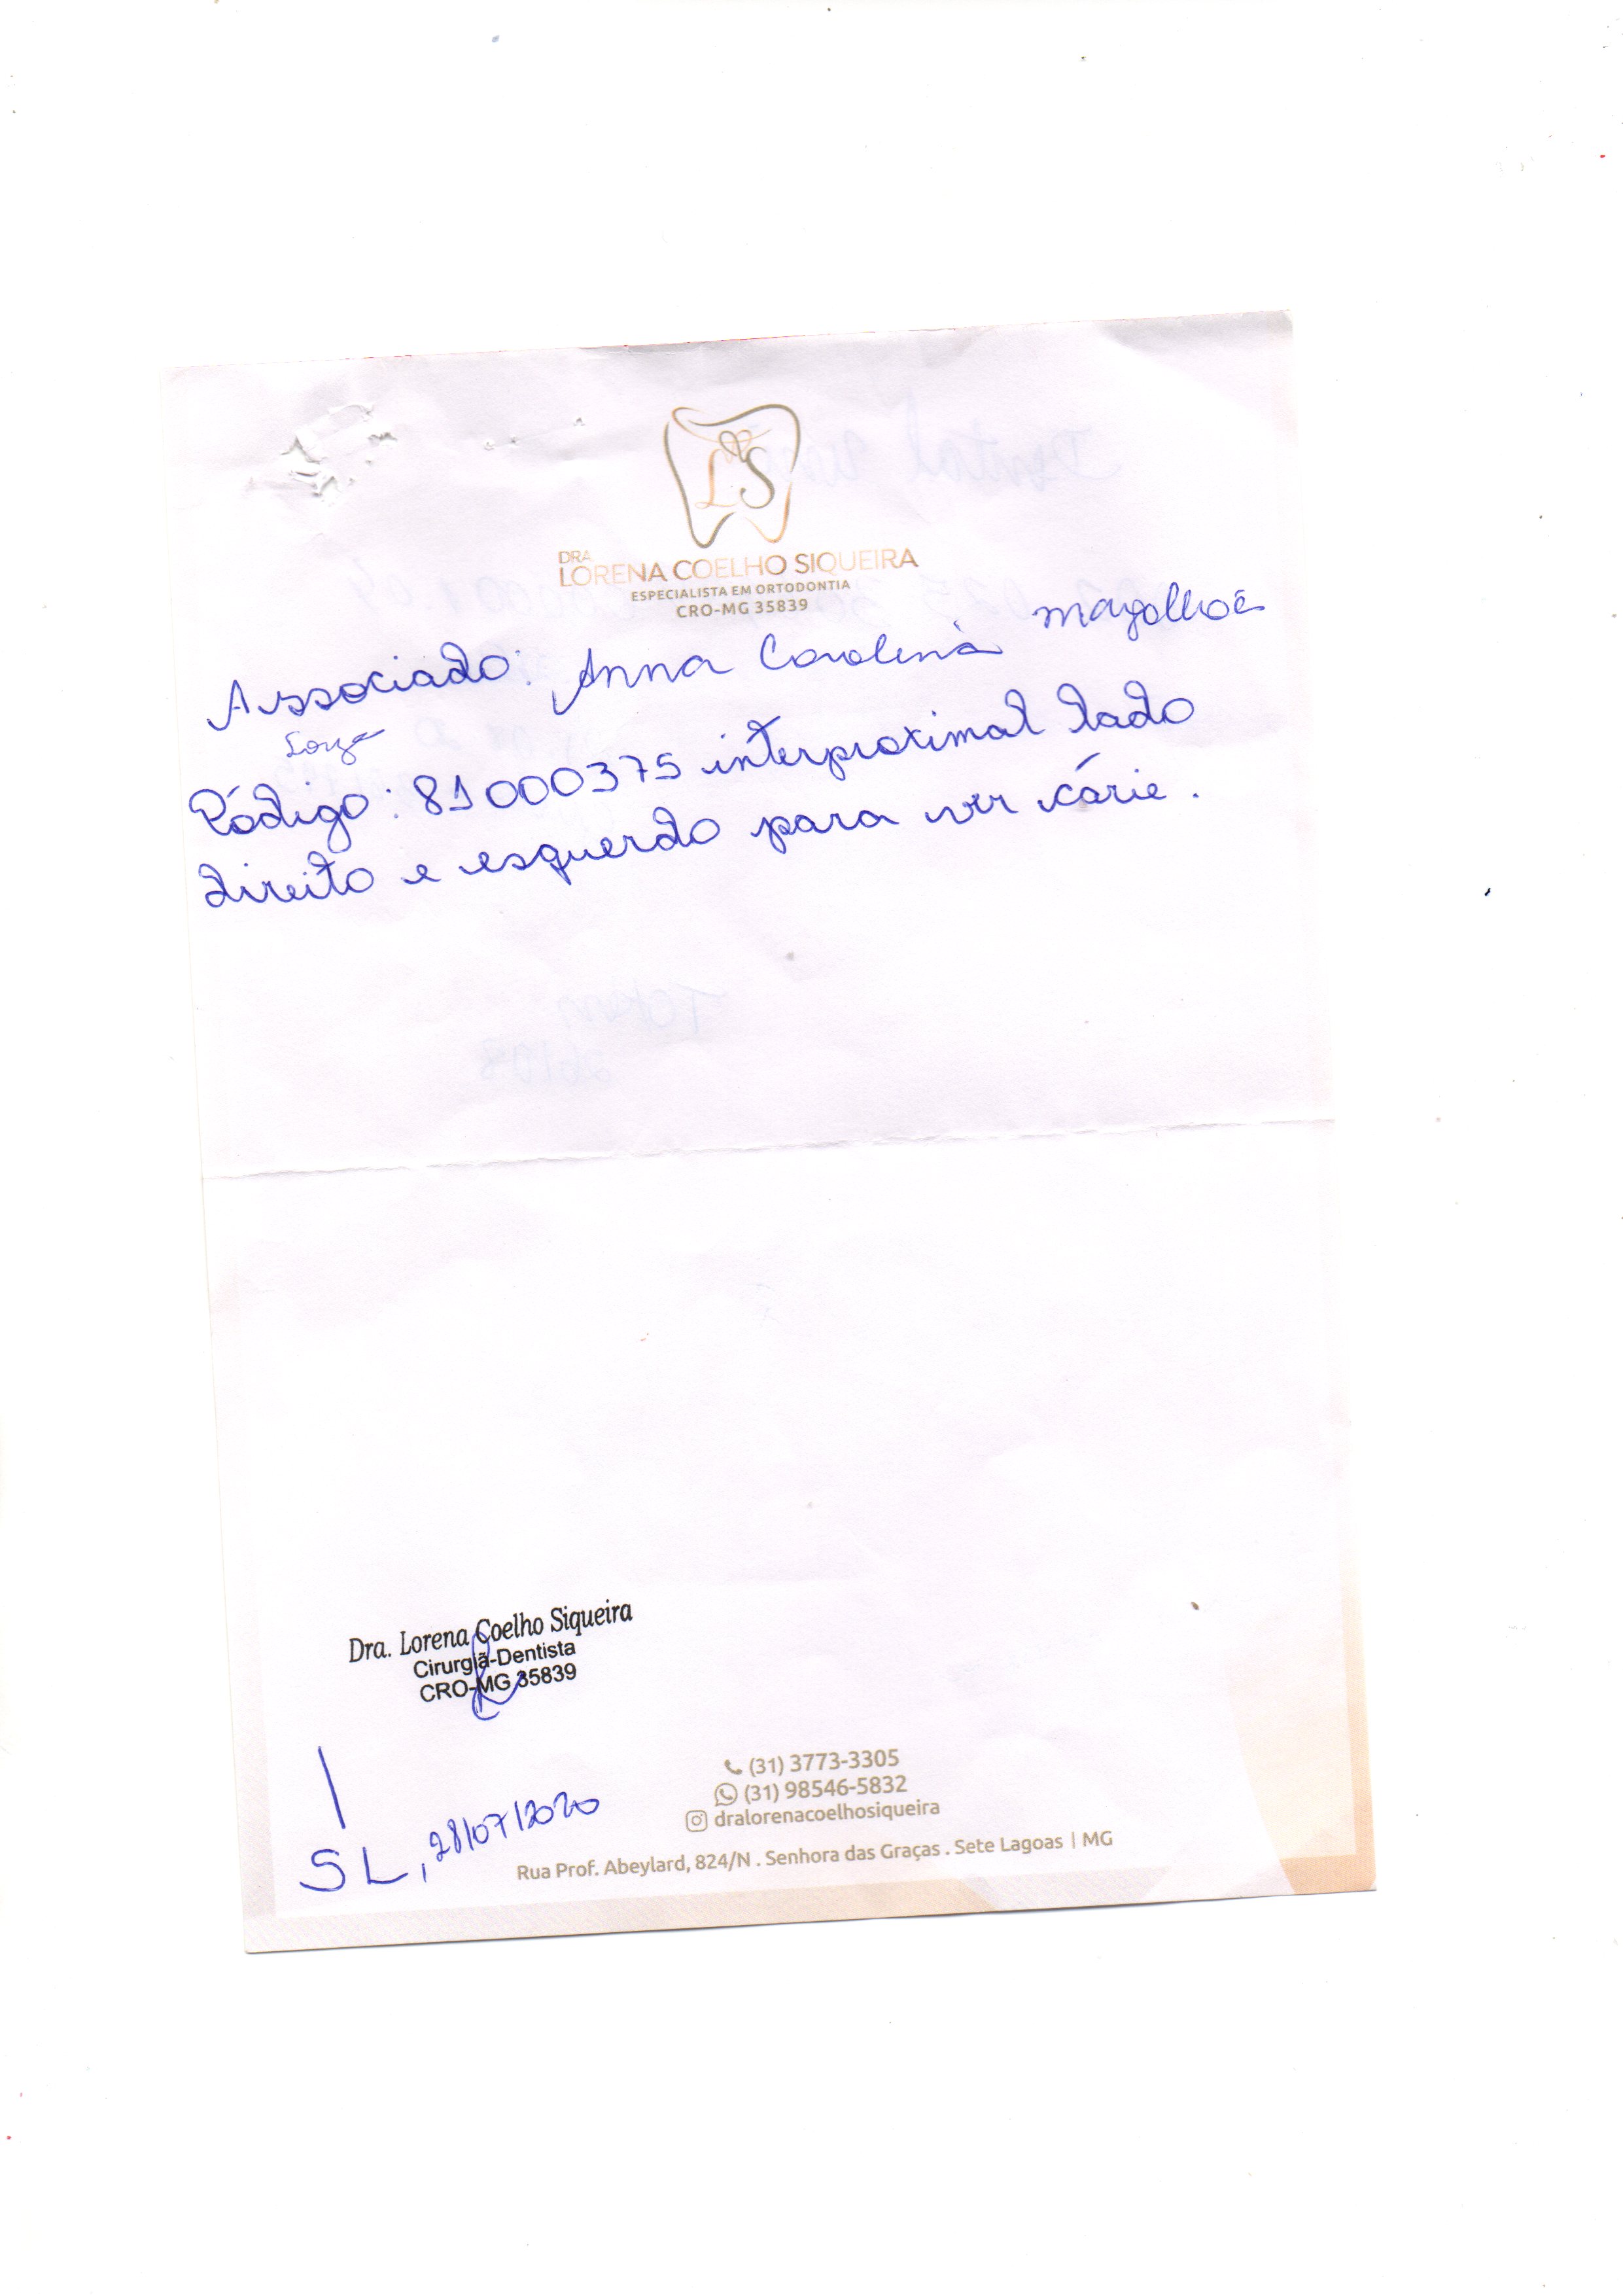 LS
DRA.
LORENA COELHO SIQUEIRA
ESPECIALISTA EM ORTODONTIA
CRO-MG 35839
Associado: Anna Carolina Magalhães
Souza
Código: 81000375 interproximal lado
direito e esquerdo para ver cárie.
Dra. Lorena Coelho Siqueira
Cirurgiã-Dentista
CRO-MG 35839
SL, 28/07/2020
(31) 3773-3305
(31) 98546-5832
dralorenacoelhosiqueira
Rua Prof. Abeylard, 824/N . Senhora das Graças . Sete Lagoas | MG